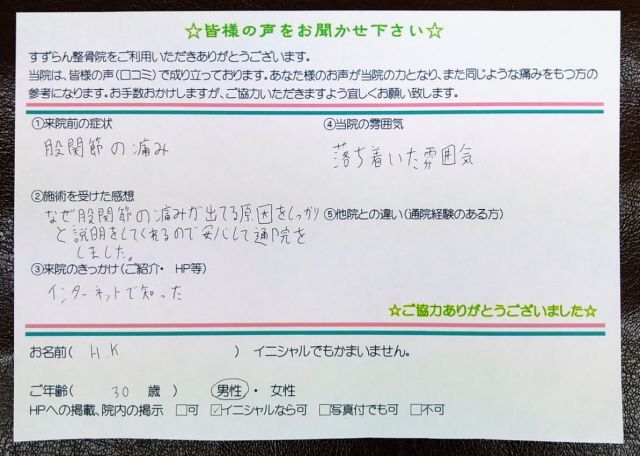 ☆皆様の声をお聞かせ下さい☆
すずらん整骨院をご利用いただきありがとうございます。
当院は、皆様の声(口コミ)で成り立っております。あなた様のお声が当院の力となり、また同じような痛みをもつ方の
参考になります。お手数おかけしますが、ご協力いただきますよう宜しくお願い致します。
①来院前の症状
股関節の痛み
②施術を受けた感想
なぜ股関節の痛みが出てる原因をしっかり
と説明をしてくれるので安心して通院を
しました。
③来院のきっかけ(ご紹介・ HP等)
インターネットで知った
④当院の雰囲気
落ち着いた雰囲気
⑤他院との違い(通院経験のある方)
☆ご協力ありがとうございました☆
お名前( H.K ) イニシャルでもかまいません。
ご年齢( 30 歳 ) 男性 ・ 女性
HPへの掲載、院内の掲示 □可 ☑イニシャルなら可 □写真付でも可 □不可